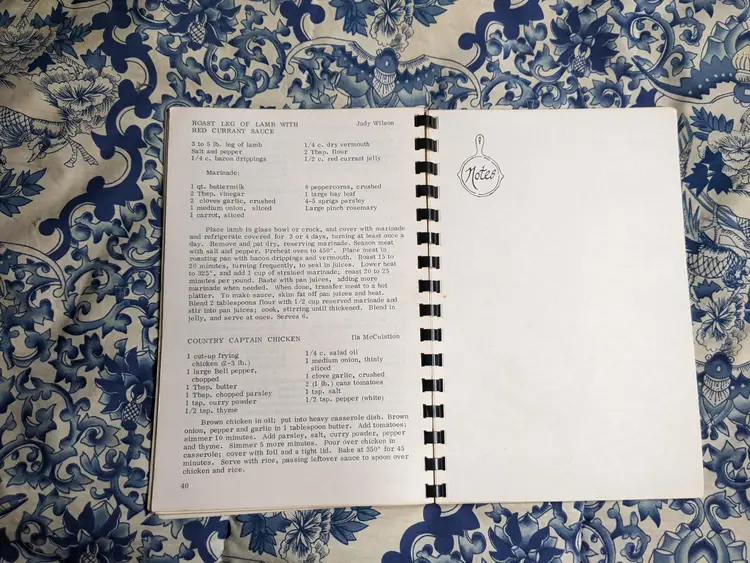 ROAST LEG OF LAMB WITH Judy Wilson
RED CURRANT SAUCE
3 to 5 lb. leg of lamb
Salt and pepper
1/4 c. bacon drippings
1/4 c. dry vermouth
2 Tbsp. flour
1/2 c. red currant jelly
Marinade:
1 qt. buttermilk
2 Tbsp. vinegar
2 cloves garlic, crushed
1 medium onion, sliced
1 carrot, sliced
6 peppercorns, crushed
1 large bay leaf
4-5 sprigs parsley
Large pinch rosemary
Place lamb in glass bowl or crock, and cover with marinade
and refrigerate covered for 3 or 4 days, turning at least once a
day. Remove and pat dry, reserving marinade. Season meat
with salt and pepper. Preheat oven to 450°. Place meat in
roasting pan with bacon drippings and vermouth. Roast 15 to
20 minutes, turning frequently, to seal in juices. Lower heat
to 325°, and add 1 cup of strained marinade; roast 20 to 25
minutes per pound. Baste with pan juices, adding more
marinade when needed. When done, transfer meat to a hot
platter. To make sauce, skim fat off pan juices and heat.
Blend 2 tablespoons flour with 1/2 cup reserved marinade and
stir into pan juices; cook, stirring until thickened. Blend in
jelly, and serve at once. Serves 6.
COUNTRY CAPTAIN CHICKEN Ila McCuistion
1 cut-up frying
chicken (2-3 lb.)
1 large Bell pepper,
chopped
1 Tbsp. butter
1 Tbsp. chopped parsley
1 tsp. curry powder
1/2 tsp. thyme
1/4 c. salad oil
1 medium onion, thinly
sliced
1 clove garlic, crushed
2 (1 lb.) cans tomatoes
1 tsp. salt
1/2 tsp. pepper (white)
Brown chicken in oil; put into heavy casserole dish. Brown
onion, pepper and garlic in 1 tablespoon butter. Add tomatoes;
simmer 10 minutes. Add parsley, salt, curry powder, pepper
and thyme. Simmer 5 more minutes. Pour over chicken in
casserole; cover with foil and a tight lid. Bake at 350° for 45
minutes. Serve with rice, passing leftover sauce to spoon over
chicken and rice.
40
Notes